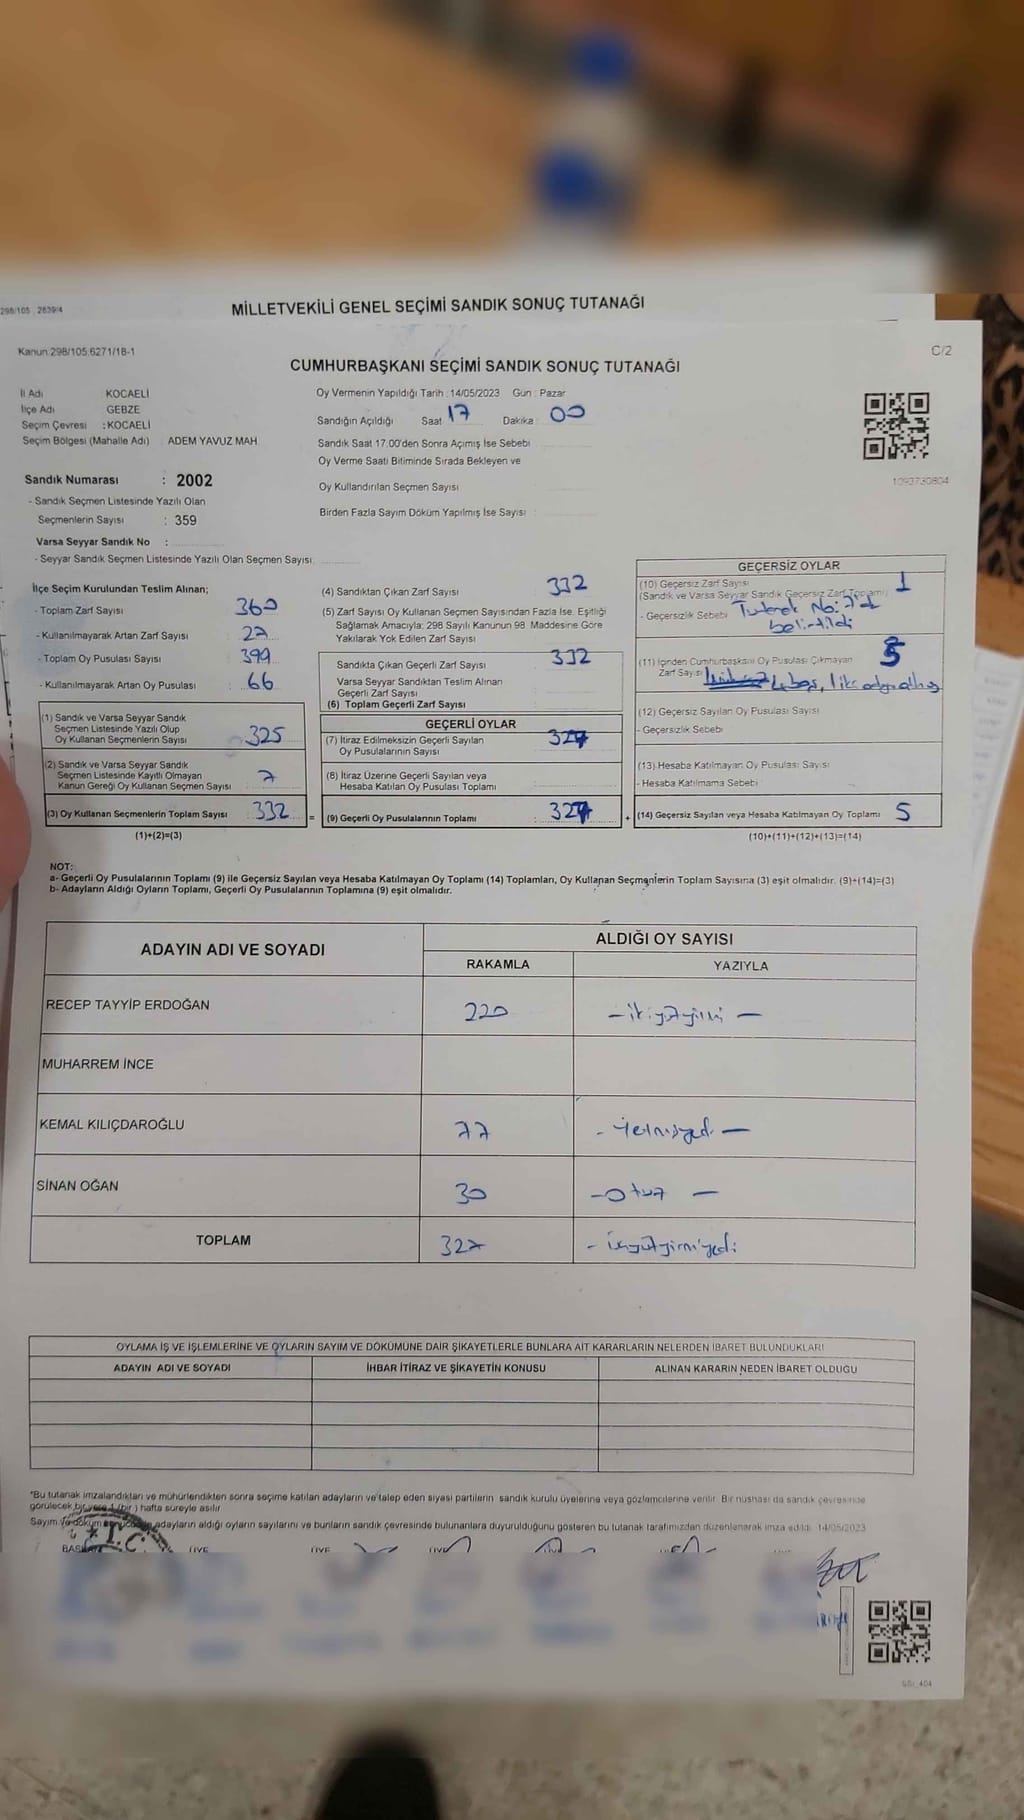 298/105 , 2839/4
MİLLETVEKİLİ GENEL SEÇİMİ SANDIK SONUÇ TUTANAĞI
Kanun:298/105,6271/18-1
C/2
CUMHURBAŞKANI SEÇİMİ SANDIK SONUÇ TUTANAĞI
İl Adı : KOCAELİ
İlçe Adı GEBZE
Seçim Çevresi : KOCAELİ
Seçim Bölgesi (Mahalle Adı) : ADEM YAVUZ MAH.
Sandık Numarası : 2002
- Sandık Seçmen Listesinde Yazılı Olan
Seçmenlerin Sayısı : 359
Varsa Seyyar Sandık No :
- Seyyar Sandık Seçmen Listesinde Yazılı Olan Seçmen Sayısı:
Oy Vermenin Yapıldığı Tarih : 14/05/2023 Gün : Pazar
Sandığın Açıldığı Saat 17 Dakika : 00
Sandık Saat 17:00'den Sonra Açımış İse Sebebi
Oy Verme Saati Bitiminde Sırada Bekleyen ve
Oy Kullandırılan Seçmen Sayısı
Birden Fazla Sayım Döküm Yapılmış İse Sayısı :
1093730804
İlçe Seçim Kurulundan Teslim Alınan;
- Toplam Zarf Sayısı : 360
- Kullanılmayarak Artan Zarf Sayısı : 27
- Toplam Oy Pusulası Sayısı : 399
- Kullanılmayarak Artan Oy Pusulası : 66
(1) Sandık ve Varsa Seyyar Sandık
Seçmen Listesinde Yazılı Olup
Oy Kullanan Seçmenlerin Sayısı : 325
(2) Sandık ve Varsa Seyyar Sandık
Seçmen Listesinde Kayıtlı Olmayan
Kanun Gereği Oy Kullanan Seçmen Sayısı : 7
(3) Oy Kullanan Seçmenlerin Toplam Sayısı : 332 =
(1)+(2)=(3)
(4) Sandıktan Çıkan Zarf Sayısı : 332
(5) Zarf Sayısı Oy Kullanan Seçmen Sayısından Fazla İse, Eşitliği
Sağlamak Amacıyla; 298 Sayılı Kanunun 98. Maddesine Göre
Yakılarak Yok Edilen Zarf Sayısı :
Sandıkta Çıkan Geçerli Zarf Sayısı : 332
Varsa Seyyar Sandıktan Teslim Alınan
Geçerli Zarf Sayısı :
(6) Toplam Geçerli Zarf Sayısı :
GEÇERLİ OYLAR
(7) İtiraz Edilmeksizin Geçerli Sayılan
Oy Pusulalarının Sayısı : 327
(8) İtiraz Üzerine Geçerli Sayılan veya
Hesaba Katılan Oy Pusulası Toplamı :
(9) Geçerli Oy Pusulalarının Toplamı : 327 +
GEÇERSİZ OYLAR
(10) Geçersiz Zarf Sayısı 1
(Sandık ve Varsa Seyyar Sandık Geçersiz Zarf Toplamı)
- Geçersizlik Sebebi Tutanak No:
belirtildi
(11) İçinden Cumhurbaşkanı Oy Pusulası Çıkmayan
Zarf Sayısı 5
(12) Geçersiz Sayılan Oy Pusulası Sayısı
- Geçersizlik Sebebi
(13) Hesaba Katılmayan Oy Pusulası Sayısı
- Hesaba Katılmama Sebebi
(14) Geçersiz Sayılan veya Hesaba Katılmayan Oy Toplamı 5
(10)+(11)+(12)+(13)=(14)
NOT:
a- Geçerli Oy Pusulalarının Toplamı (9) ile Geçersiz Sayılan veya Hesaba Katılmayan Oy Toplamı (14) Toplamları, Oy Kullanan Seçmenlerin Toplam Sayısına (3) eşit olmalıdır. (9)+(14)=(3)
b- Adayların Aldığı Oyların Toplamı, Geçerli Oy Pusulalarının Toplamına (9) eşit olmalıdır.
ADAYIN ADI VE SOYADI
ALDIĞI OY SAYISI
RAKAMLA YAZIYLA
RECEP TAYYİP ERDOĞAN 220 - ikiyüzyirmi -
MUHARREM İNCE
KEMAL KILIÇDAROĞLU 77 - Yetmişyedi -
SİNAN OĞAN 30 - Otuz -
TOPLAM 327 - üçyüzyirmiyedi
OYLAMA İŞ VE İŞLEMLERİNE VE OYLARIN SAYIM VE DÖKÜMÜNE DAİR ŞİKAYETLERLE BUNLARA AİT KARARLARIN NELERDEN İBARET BULUNDUKLARI
ADAYIN ADI VE SOYADI İHBAR İTİRAZ VE ŞİKAYETİN KONUSU ALINAN KARARIN NEDEN İBARET OLDUĞU
"Bu tutanak imzalandıktan ve mühürlendikten sonra seçime katılan adayların ve talep eden siyasi partilerin sandık kurulu üyelerine veya gözlemcilerine verilir. Bir nüshası da sandık çevresinde
görülecek bir yere 1 (bir ) hafta süreyle asılır.
Sayım ve döküm sonucunda adayların aldığı oyların sayılarını ve bunların sandık çevresinde bulunanlara duyurulduğunu gösteren bu tutanak tarafımızdan düzenlenerek imza edildi. 14/05/2023
T.C.
BAŞKAN ÜYE ÜYE ÜYE ÜYE
SSI_404